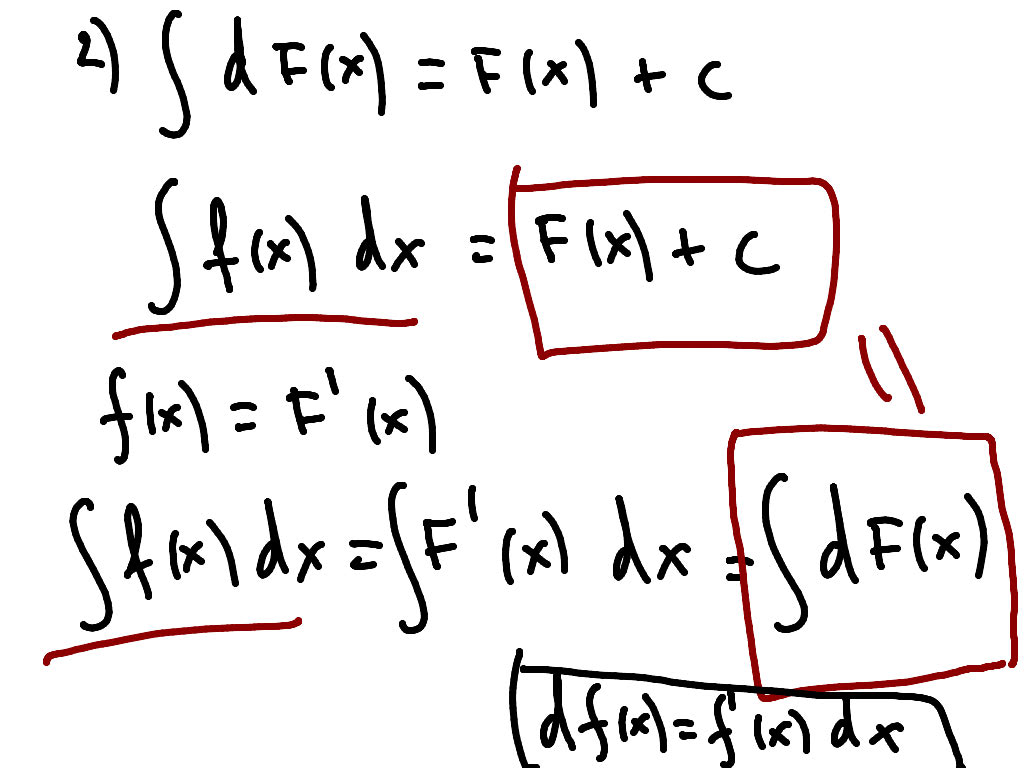 2) ∫ d F(x) = F(x) + c
∫ f(x) dx = F(x) + c
f(x) = F'(x)
∫ f(x) dx = ∫ F'(x) dx = ∫ d F(x)
df(x) = f'(x) dx